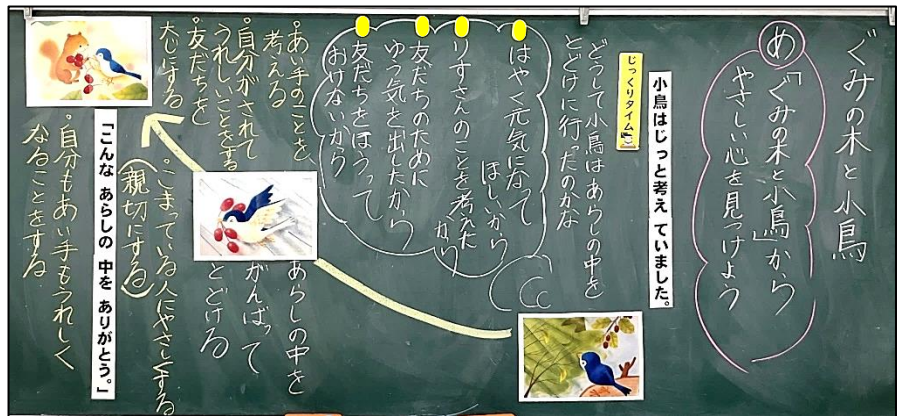 ぐみの木と小鳥
め
「ぐみの木と小鳥」から
やさしい心を見つけよう
小鳥はじっと考えていました。
じっくりタイム
どうして小鳥はあらしの中を
とどけに行ったのかな
はやく元気になって
ほしいから
りすさんのことを考えた
から
友だちのために
ゆう気を出したから
友だちをほうって
おけないから
あらしの中を
がんばって
とどける
・あい手のことを
考える
・自分がされて
うれしいことをする
・友だちを
大じにする
・こまっている人にやさしくする
(親切にする)
「こんな あらしの 中を ありがとう。」
・自分もあい手もうれしく
なることをする